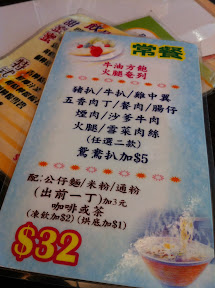 常餐
牛油方飽
火腿奄列
豬扒/牛扒/雞中翼
五香肉丁/餐肉/腸仔
煙肉/沙爹牛肉
火腿/雪菜肉絲
(任選二款)
鴛鴦扒加$5
配:公仔麵/米粉/通粉
(出前一丁)加3元
咖啡或茶
(凍飲加$2)(烘底加$1)
$32